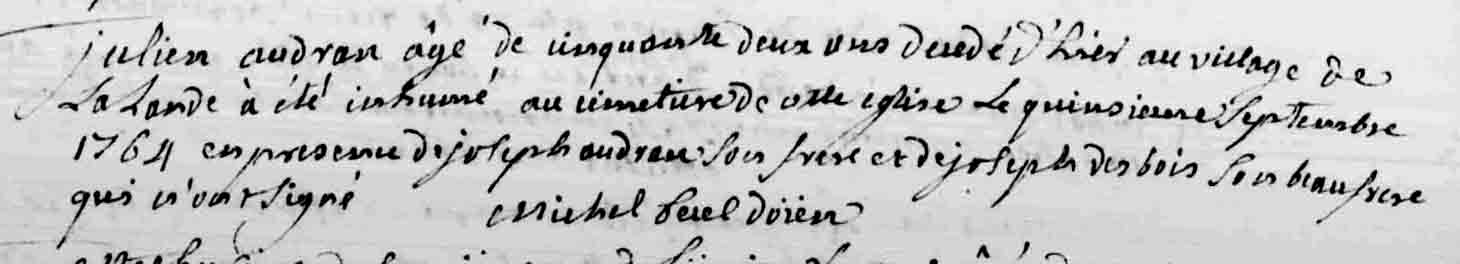 julien audran âgé de cinquante deux ans decedé d'hier au village de
La Lande à été inhumé au cimetiere de cette eglise Le quinsieme Septembre
1764 en presence de joseph audran son frere et de joseph des bois son beau frere
qui n'ont signé Michel doien